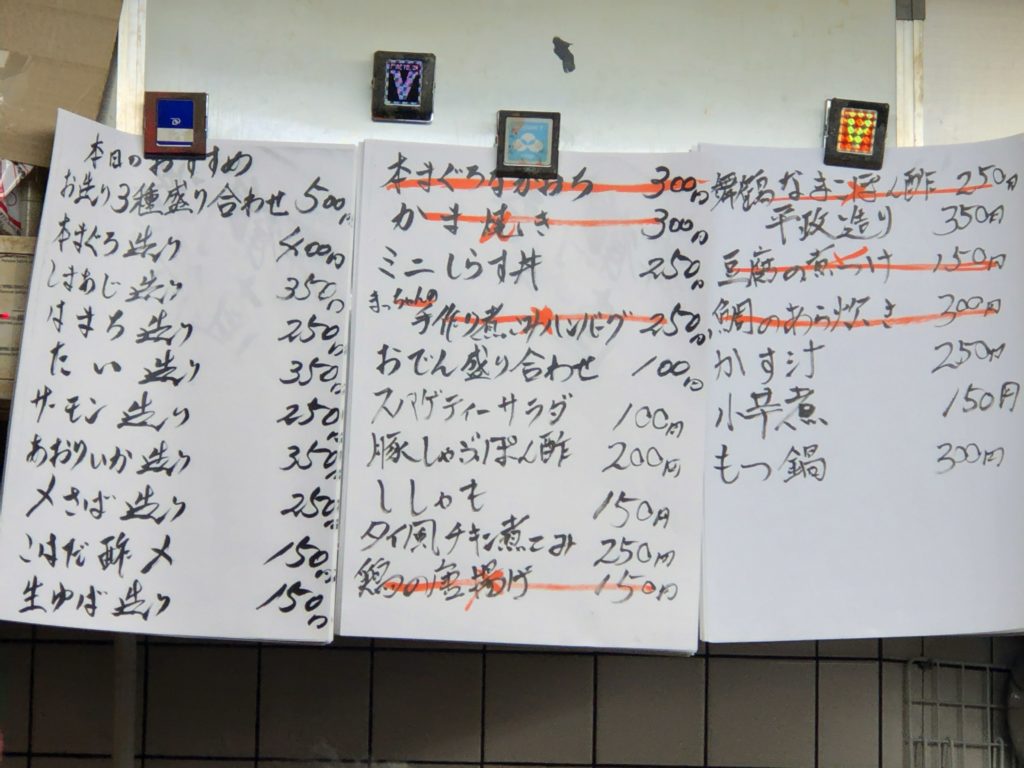 本日のおすすめ
お造り3種盛り合わせ 500円
本まぐろ造り 400円
しまあじ造り 350円
はまち造り 250円
たい造り 350円
サーモン造り 250円
あおりいか造り 350円
〆さば造り 250円
こはだ酢〆 150円
生ゆば造り 150円
本まぐろすなおち 300円
かま焼き 300円
ミニしらす丼 250円
まっちゃんの
手作り煮込みハンバーグ 250円
おでん盛り合わせ 100円
スパゲティーサラダ 100円
豚しゃぶぽん酢 200円
ししゃも 150円
タイ風チキン煮こみ 250円
鶏の唐揚げ 150円
舞鶴なまこぽん酢 250円
平政造り 350円
豆腐の煮つけ 150円
鯛のあら炊き 300円
かす汁 250円
小芋煮 150円
もつ鍋 300円
V